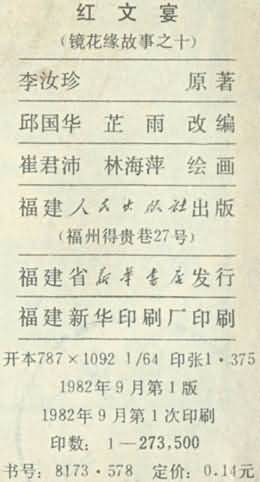 红文宴
(镜花缘故事之十)
李汝珍 原著
邱国华 芷雨 改编
崔君沛 林海萍 绘画
福建人民出版社出版
(福州得贵巷27号)
福建省新华书店发行
福建新华印刷厂印刷
开本787×1092 1/64 印张1·375
1982年9月第1版
1982年9月第1次印刷
印数: 1—273,500
书号: 8173·578 定价: 0.14元